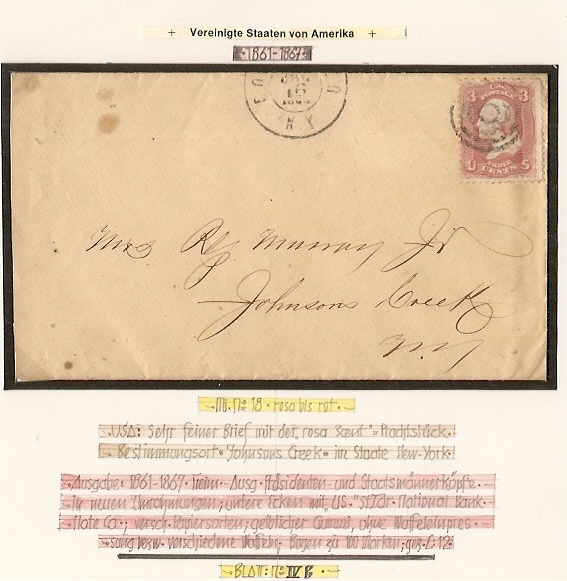 + Vereinigte Staaten von Amerika +
·1861-1867·
N.Y.
3 U.S. POSTAGE 3
U THREE CENTS S
Mrs R J Murray Jr
Johnsons Creek
N.Y
·Mi. No 18 · rosa bis rot·
·USA: Sehr feiner Brief mit der, rosa 3cent"= Prachtstück·
·Bestimmungsort "Johnsons Creek" im Staate New-York·
Ausgabe ·1861-1867· Freim.· Ausg· Präsidenten- und Staatsmännerköpfe·
in neuen Umrahmungen; untere Ecken mit, US." StTdr· National Bank·
Note Co., versch· Papiersorten; gelblicher Gummi, ohne Waffeleinpres·
sung bzw· verschiedene Waffeln, Bogen zu 100 Marken; gez· L: 12·
·BLATT: No IV B·